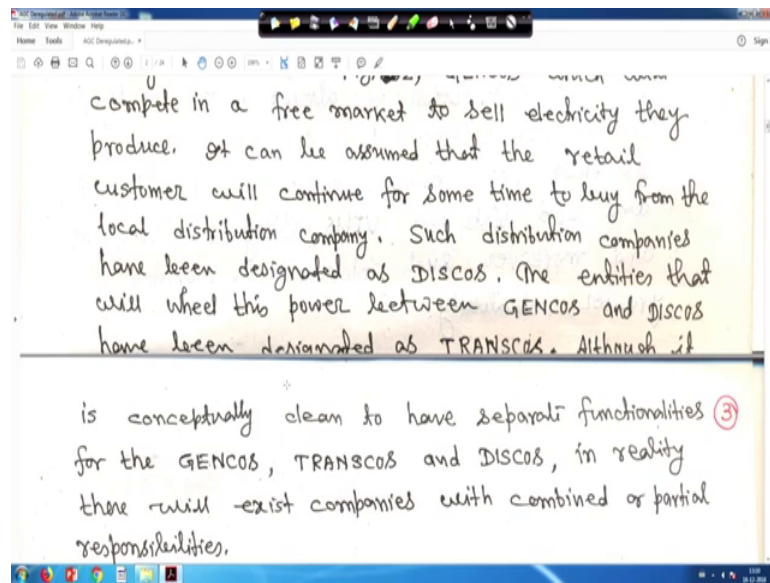 AGC Deregulated.pdf - Adobe Acrobat Reader DC
File Edit View Window Help
Home Tools AGC Deregulated.p... ×
Sign
GENCOS which will
compete in a free market to sell electricity they
produce. It can be assumed that the retail
customer will continue for some time to buy from the
local distribution company. Such distribution companies
have been designated as DISCOS. The entities that
will wheel this power between GENCOS and DISCOS
have been designated as TRANSCOS. Although it
is conceptually clean to have separate functionalities 3
for the GENCOS, TRANSCOS and DISCOS, in reality
there will exist companies with combined or partial
responsibilities.